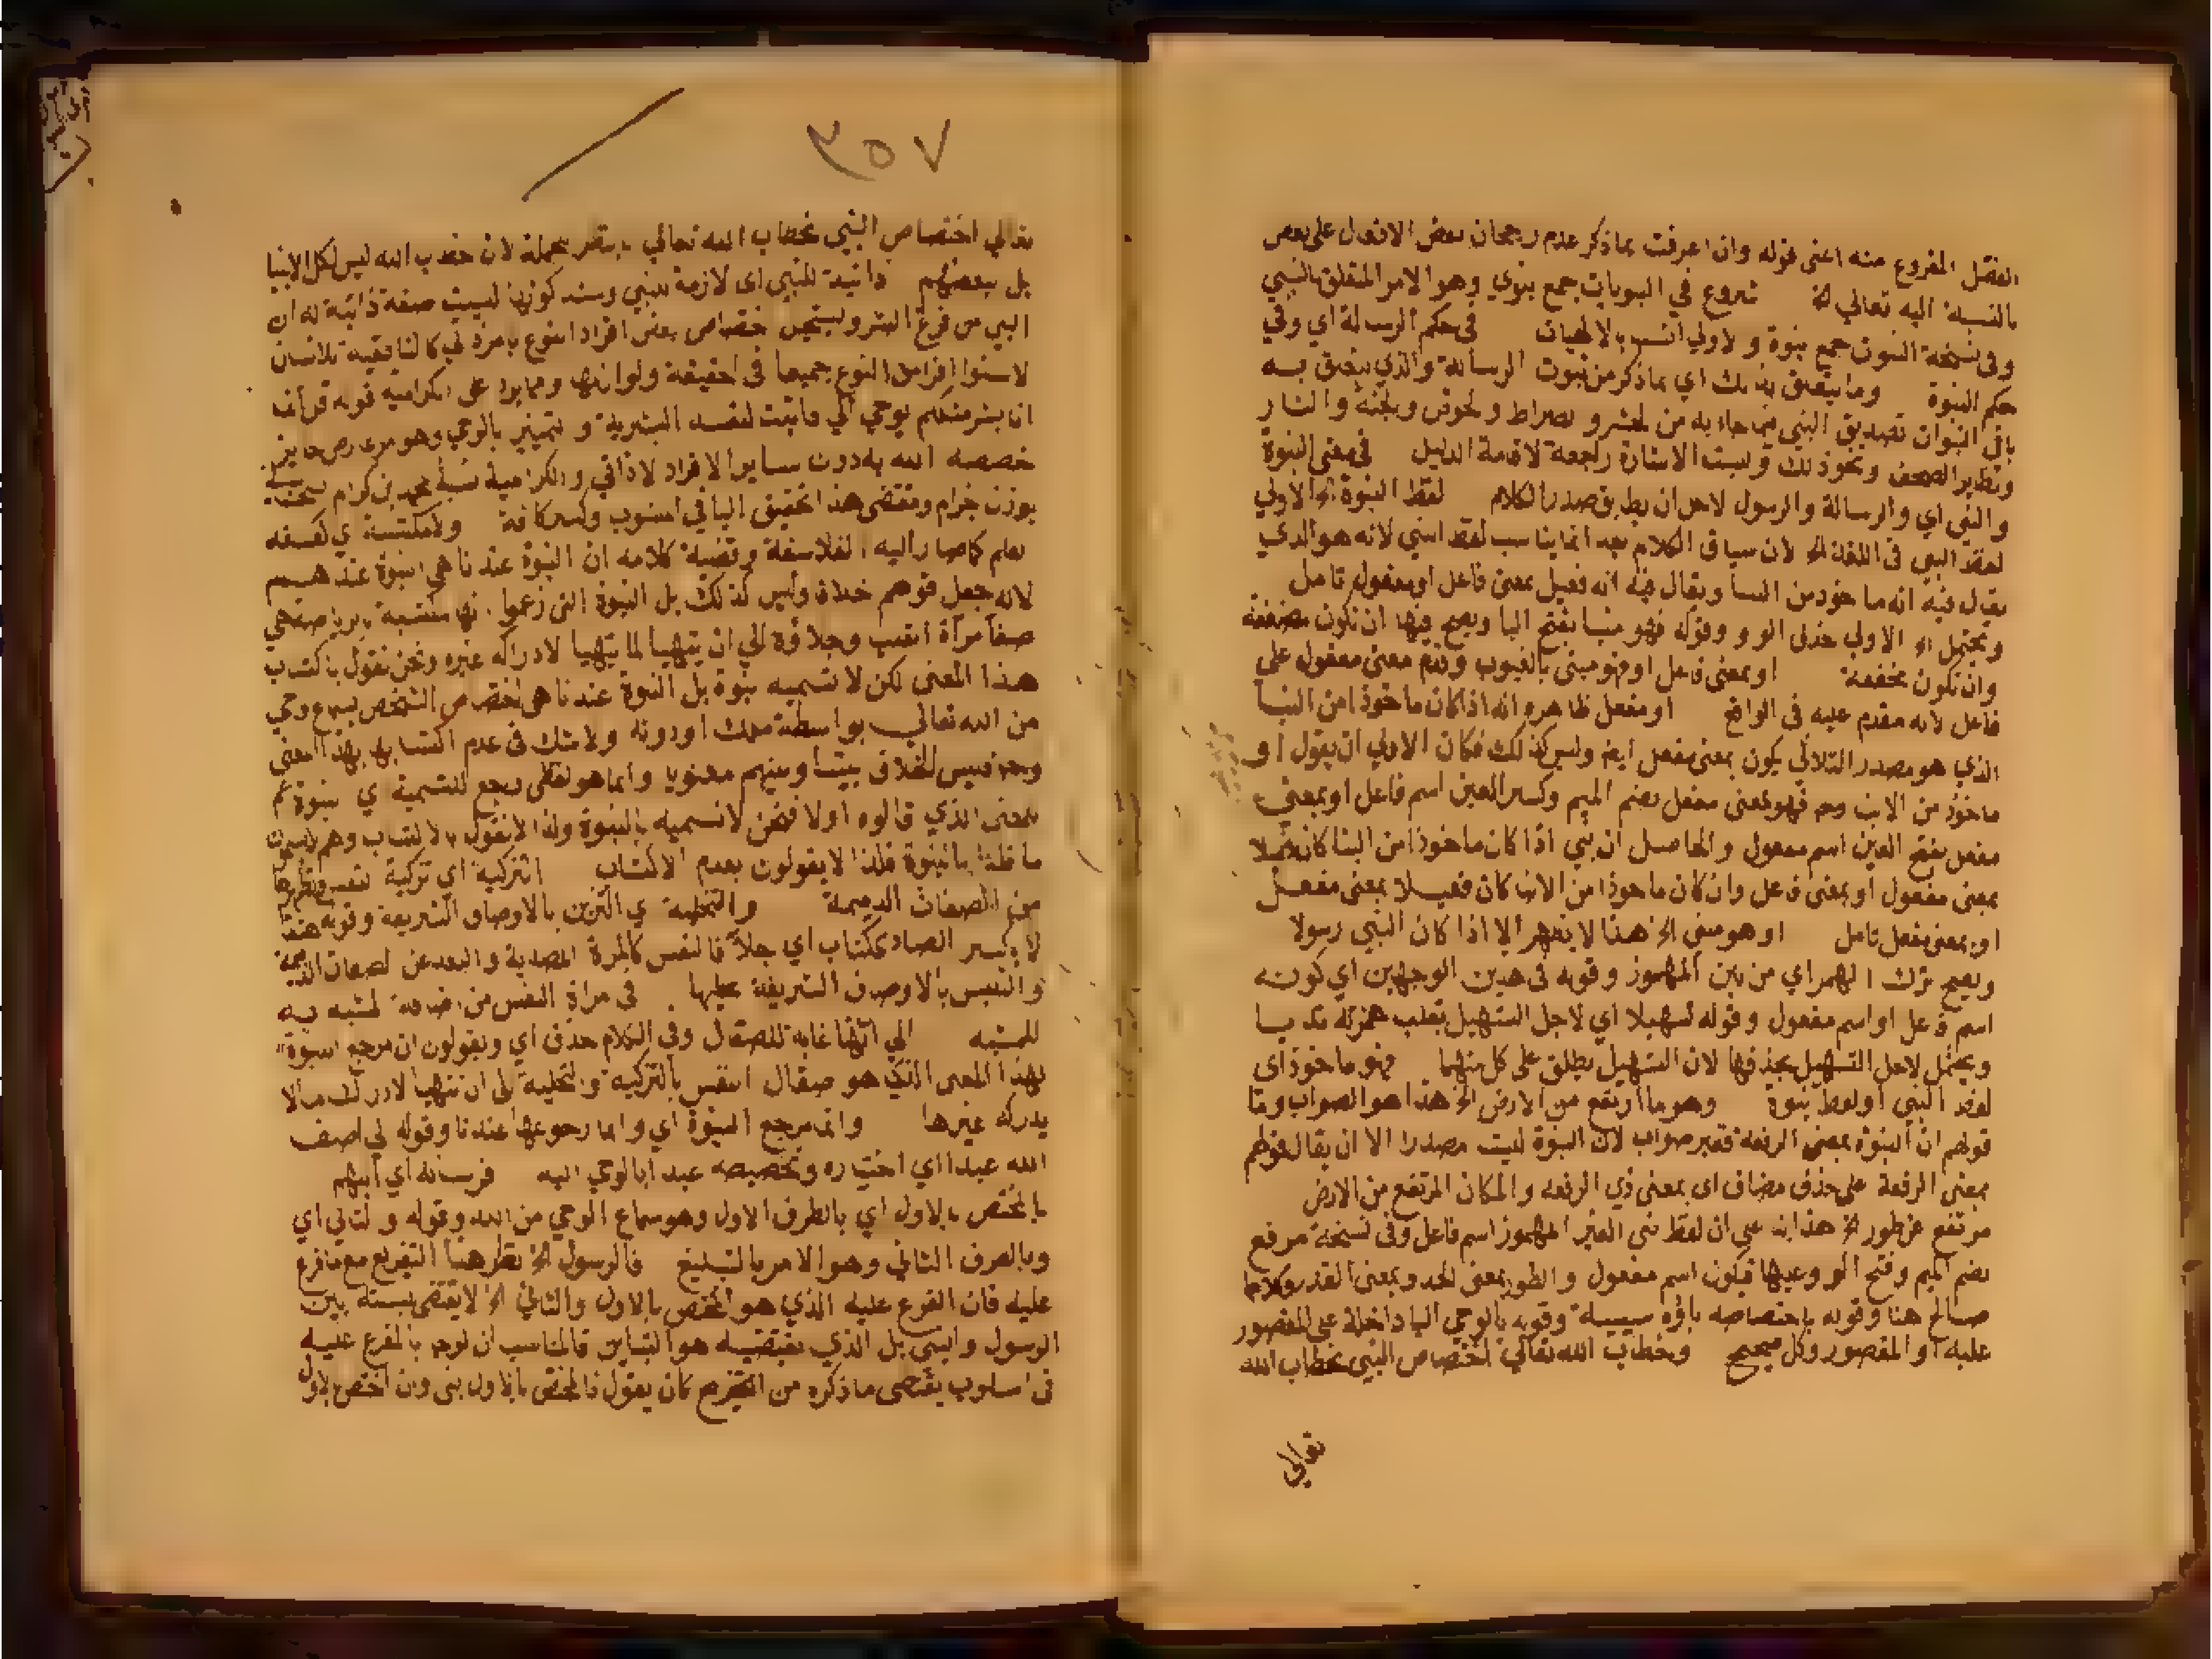 الفصل المفروغ منه اعنى قوله وان اعرفت بما ذكر عدم رجحان بعض الافعال على بعض
بالنسبة اليه تعالي الخ شروع في النبويات جمع نبوي وهو الامر المتعلق بالنبي
وفى نسخة النبوات جمع نبوة والاولي انسب بالالهيات فى حكم الرسالة اي وفي
حكم النبوة وما يتعلق بذلك اي بما ذكر من ثبوت الرسالة والذي يتعلق به
باقى النبوات تصديق النبي فيما جاء به من الحشر والصراط والحوض والجنة والنار
وتطاير الصحف ونحو ذلك وليست الاشارة راجعة لاقامة الدليل فى معنى النبوة
والنبى اي والرسالة والرسول لاجل ان يطابق صدر الكلام لفظ النبوة الخ الاولي
لفظ النبي فى اللغة الخ لان سياق الكلام بعد انما يناسب لفظ النبي لانه هو الذي
يقال فيه انه ماخوذ من النبأ ويقال فيه انه فعيل بمعنى فاعل او مفعول تامل
ويحتمل الخ الاولي حذف الواو وقوله فهو منبأ بفتح البا ويصح فيها ان تكون مضعفة
وان تكون مخففة او بمعنى فاعل او فهو منبئ بالغيوب وقدم معنى مفعول على
فاعل لانه مقدم عليه فى الواقع او مفعل ظاهره انه اذا كان ماخوذا من النبأ
الذي هو مصدر الثلاثي يكون بمعنى مفعل ايضا وليس كذلك فكان الاولي ان يقول او
ماخوذ من الانباء فهو بمعنى مفعل بضم الميم وكسر العين اسم فاعل او بمعنى
مفعل بفتح العين اسم مفعول والحاصل ان نبي اذا كان ماخوذا من النبا كان فعيلا
بمعنى مفعول او بمعنى فاعل وان كان ماخوذا من الانباء كان فعيلا بمعنى مفعل
او بمعنى مفعل تامل او هو منبى الخ هذا لا يظهر الا اذا كان النبي رسولا
ويصح ترك الهمز اي من بين المهموز وقوله فى هذين الوجهين اي كونه
اسم فاعل او اسم مفعول وقوله تسهيلا اي لاجل التسهيل بقلب همزته يا
ويحتمل لاجل التسهيل بحذفها لان التسهيل يطلق على كل منهما فهو ماخوذ اى
لفظ النبي او لفظ نبوة وهو ما ارتفع من الارض الخ هذا هو الصواب وما
قولهم ان النبوة بمعنى الرفعة فغير صواب لان النبوة ليست مصدرا الا ان يقال قولهم
بمعنى الرفعة على حذف مضاف اى بمعنى ذي الرفعه والمكان المرتفع من الارض
مرتفع عن طور الخ هذا بناء على ان لفظ نبى الغير المهموز اسم فاعل وفى نسخة مرفع
بضم الميم وفتح الواو وعليها فيكون اسم مفعول والطور بمعنى الحد وبمعنى القدر وكلاهما
صالح هنا وقوله باختصاصه باؤه سببية وقوله بالوحي البا داخلة على المقصور
عليه او المقصور وكل صحيح وخطاب الله تعالي اختصاص النبى بخطاب الله
تعالي
٣٥٧
تعالي اختصاص النبي بخطاب الله تعالي يتصور بجملة لان خطاب الله ليس لكل الانبيا
بل بعضهم ذاتية للنبي اى لازمة للنبي وسند كونها ليست صفة ذاتية له ان
النبي من نوع البشر ويستحيل اختصاص بعض افراد النوع بامر ذاتي كالناطقية للانسان
لاستوا افراد النوع جميعا فى الحقيقة ولوازمها ومما يرد على الكرامية قوله قل انما
انا بشر مثلكم يوحي الي فاثبت لنفسه البشرية والتمييز بالوحي وهو
خصصه الله به دون ساير الافراد لا ذاتي والكرامية نسبة لمحمد بن كرام
بوزن جزام ومقتضى هذا تخفيف اليا في المنسوب وكسر كافه ولا مكتسبة اي لكسبه
بعلم كما صار اليه الفلاسفة وقضية كلامه ان النبوة عندنا هي النبوة عندهم
لانه جعل قولهم خلافا وليس كذلك بل النبوة التى زعموا انها مكتسبة بالرياضة هي
صفا مرآة القلب وجلاؤه الي ان يتهيا لما يتهيا لادراكه غيره ونحن نقول باكتساب
هذا المعنى لكن لا نسميه نبوة بل النبوة عندنا هى اختصاص الشخص بسماع وحي
من الله تعالي بواسطة ملك او دونه ولا شك فى عدم اكتسابها بهذا المعنى
وحينئذ فليس الخلاف بيننا وبينهم معنويا وانما هو لفظى يرجع للتسمية اي نبوة هم
بالمعنى الذي قالوه اولا فنحن لا نسميه بالنبوة ولذا لا نقول بالاكتساب وهم لا يسمون
ما قلنا بالنبوة فلذا لا يقولون بعدم الاكتساب التزكية اي تزكية النفس وتطهيرها
من الصفات الذميمة والتحلية اي التزين بالاوصاف الشريفة وقوله
لا بكسر الصاد ككتاب اي جلا فالنفس كالمرآة المصدية والبعد عن الصفات الذميمة
والتلبس بالاوصاف الشريفة جليها فى مرآة النفس من اضافة المشبه به
للمشبه الي انها غاية للصقال وفى الكلام حذف اي ويقولون ان مرجع النبوة
لهذا المعنى الذي هو صقال النفس بالتزكية والتحلية الى ان تتهيا لادراك ما لا
يدركه غيرها وانما مرجع النبوة اي وانما رجوعها عندنا وقوله الى اصطفاء
الله عبدا اي اختياره وتخصيصه عبدا بالوحي اليه فرسالة اي انهم
بالمختص بالاول اي بالطرف الاول وهو سماع الوحي من الله وقوله والثاني اي
وبالطرف الثاني وهو الامر بالتبليغ فالرسول الخ نظر هنا التفريع مع ما فرع
عليه فان المفرع عليه الذي هو المختص بالاول والثاني الخ لا يقتضى نسبة بين
الرسول والنبي بل الذي يقتضيه هو التباين فالمناسب ان لو جاء بالمفرع عليه
فى اسلوب يقتضى ما ذكره من التفريع كان يقول فالمختص بالاول نبى وان اختص بالاول